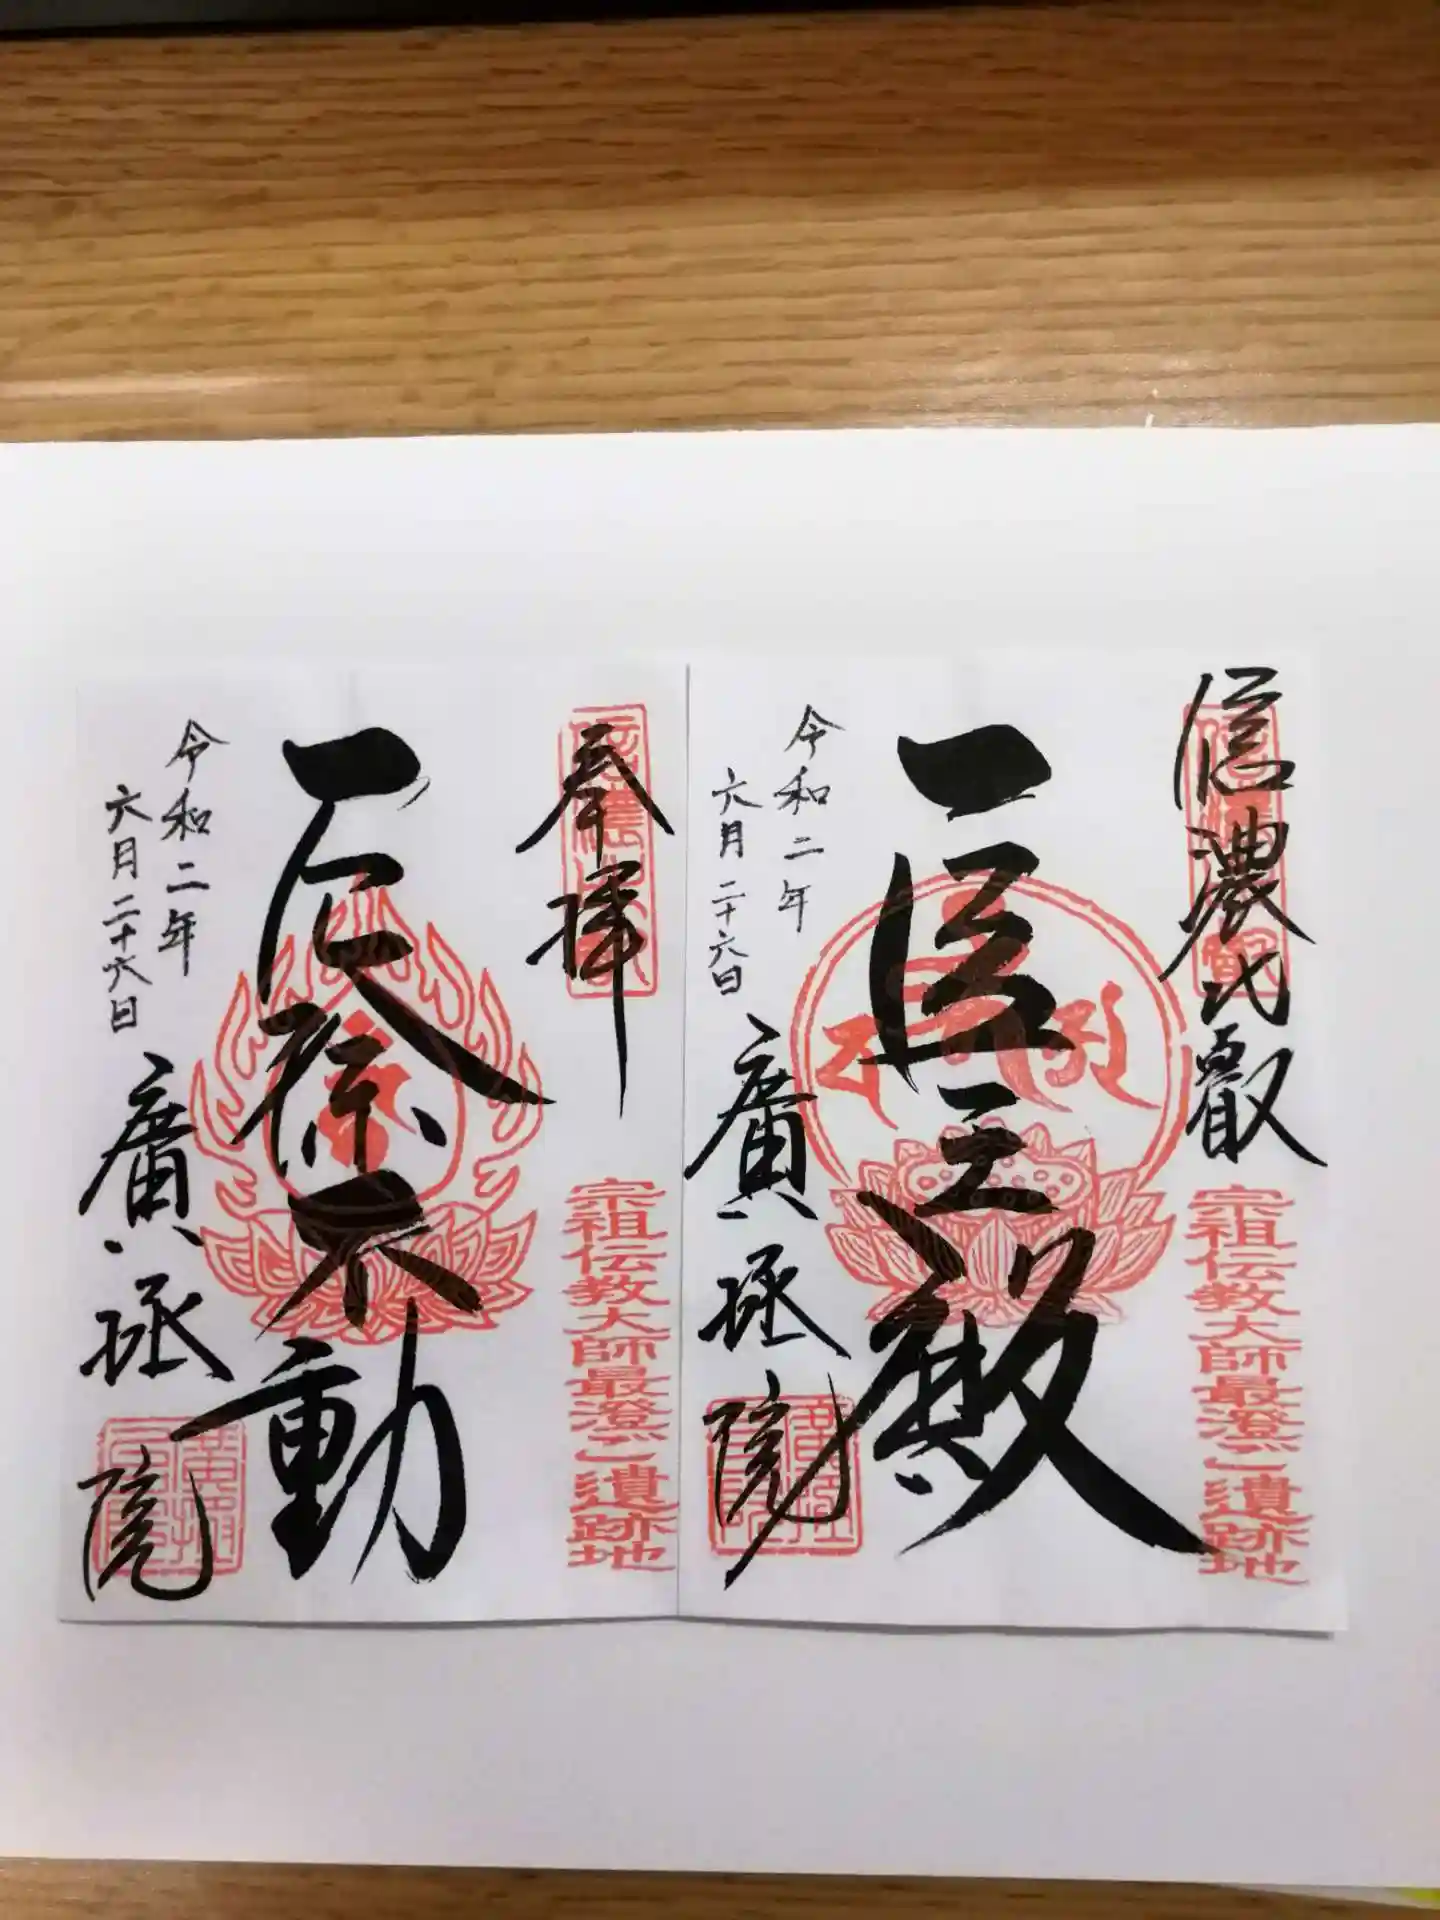 信濃比叡
信濃比叡
宗祖伝教大師最澄ご遺跡地
医王殿
令和二年
六月二十六日
廣拯院
奉拝
信濃比叡
宗祖伝教大師最澄ご遺跡地
厄除不動
令和二年
六月二十六日
廣拯院